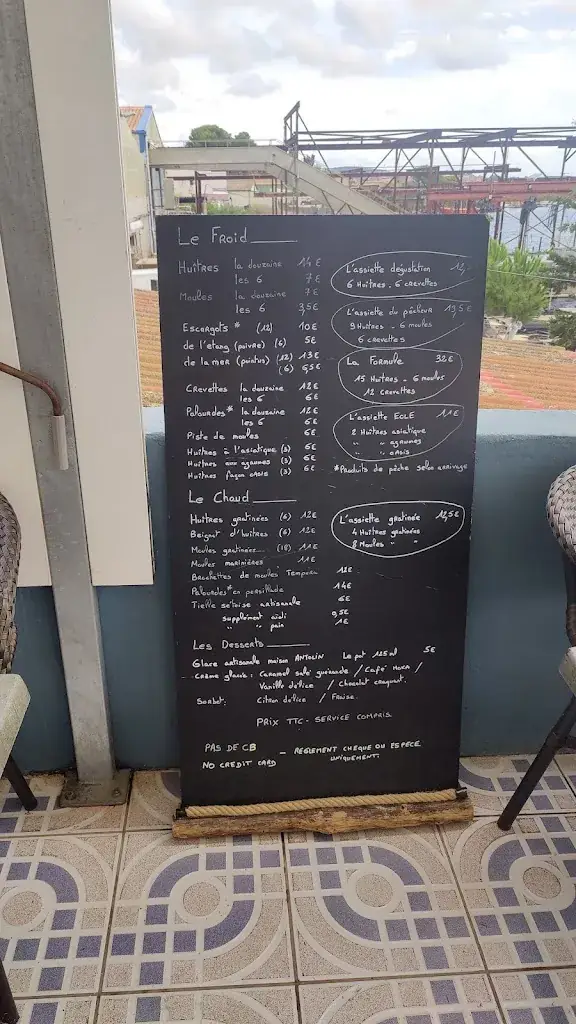 Le Froid
Huîtres la douzaine 14€
les 6 7€
Moules la douzaine 7€
les 6 3,5€
Escargots* (12) 10€
de l'étang (poivre) (6) 5€
de la mer (pointus) (12) 13€
(6) 6,5€
Crevettes la douzaine 12€
les 6 6€
Palourdes* la douzaine 12€
les 6 6€
Piste de moules 6€
Huîtres à l'asiatique (3) 6€
Huîtres aux agrumes (3) 6€
Huîtres façon (3) 6€
L'assiette dégustation 12,-
6 Huîtres - 6 crevettes
L'assiette du pêcheur 19,5€
9 Huîtres - 6 moules
6 crevettes
La Formule 32€
15 Huîtres - 6 moules
12 crevettes
L'assiette EGLE 11€
2 Huîtres asiatique
" " agrumes
" "
*Produits de pêche selon arrivage
Le Chaud
Huîtres gratinées (6) 12€
Beignet d'huîtres (6) 12€
Moules gratinées (18) 11€
Moules marinières 11€
Brochettes de moules Tempura 12€
Palourdes* en persillade 14€
Tielle sétoise artisanale 6€
supplément aïoli 0,5€
" " pain 1€
L'assiette gratinée 12,5€
4 Huîtres gratinées
8 Moules " "
Les Desserts
Glace artisanale maison ANTOLIN Le pot 125 ml 5€
Crème glacée : Caramel salé guérande / Café MOKA /
Vanille délice / Chocolat craquant.
Sorbet: Citron délice / Fraise.
PRIX TTC - SERVICE COMPRIS
PAS DE CB - REGLEMENT CHEQUE OU ESPECE
NO CREDIT CARD UNIQUEMENT.